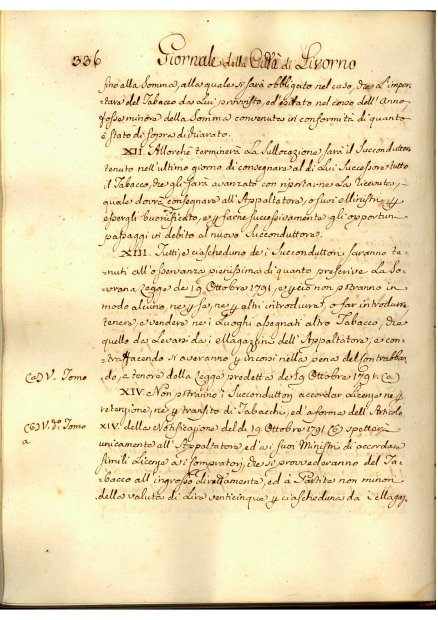 336 Giornale della Città di Livorno
fino alla Somma, alla quale si sarà obbligato nel caso, che l'impor-
tare del Tabacco da Lui provvisto, ed esitato nel corso dell'Anno
fosse minore della Somma convenuta in conformità di quanto
è stato di sopra dichiarato.
XII. Allorchè terminerà la Sullocazione sarà il Succonduttore
tenuto nell'ultimo giorno di consegnare al di Lui Successore tutto
il Tabacco, che gli sarà avanzato con riportarne la Ricevuta,
quale dovrà consegnare all'Appaltatore, o suoi Ministri p
essergli buonificato, e p farne successivamente gli opportuni
passaggi in debito al nuovo Succonduttore.
XIII. Tutti, e ciascheduno de i Succonduttori saranno te-
nuti all'osservanza pienissima di quanto prescrive la So-
vrana Legge de 19 Ottobre 1791, e p ciò non potranno in
modo alcuno, ne p se, ne p altri introdurre, o far introdurre
tenere, e vendere ne i Luoghi assegnati altro Tabacco, che
quello da Levarsi da i Magazzini dell'Appaltatore, e con-
traffacendo si averanno p incorsi nella pena del Contrabban-
(a) V. Tomo do, a tenore della Legge predetta de 19 Ottobre 1791. (a)
XIV. Non potranno i Succonduttori accordar Licenze ne p
retenzione, ne p transito di Tabacchi, ed a forma dell'Articolo
(b) V. do. Tomo XIV della Notificazione del dì 19 Ottobre 1791 (b) spetterà
a unicamente all'Appaltatore, ed a i suoi Ministri di accordare
simili Licenze a i Compratori, che si provvederanno del Ta-
bacco all'ingrosso direttamente, ed a Partite non minori
della valuta di Lire venticinque p ciascheduna da i Magaz-